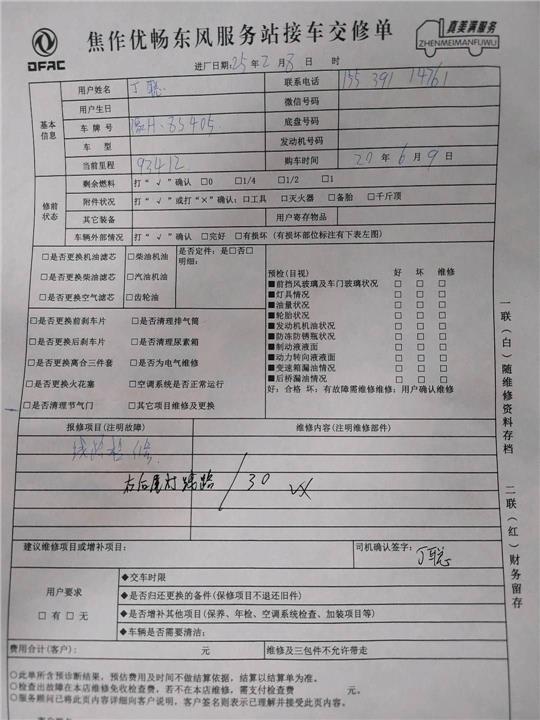 DFAC
焦作优畅东风服务站接车交修单
真美满服务
ZHENMEIMANFUWU
进厂日期:25年2月8日 时
基本信息
用户姓名 丁聪 联系电话 155 391 14761
用户生日 微信号码
车牌号 豫H·85405 底盘号码
车型 发动机号码
当前里程 93412 购车时间 20年6月9日
修前状态
剩余燃料 打“√”确认 □0 □1/4 □1/2 □1
附件状况 打“√”或打“×”确认:□工具 □灭火器 □备胎 □千斤顶
其它装备 用户寄存物品
车辆外部情况 打“√”确认 □完好 □有损坏(有损坏部位标注有下表左图)
□是否更换机油滤芯 □柴油机油 是否定件:是□否□
明细:
□是否更换柴油滤芯 □汽油机油
□是否更换空气滤芯 □齿轮油
预检(目视) 好 坏 维修
■前挡风玻璃及车门玻璃状况 □ □ □
■灯具情况 □ □ □
■油量状况 □ □ □
■轮胎状况 □ □ □
■发动机机油状况 □ □ □
■防冻防锈瓶状况 □ □ □
■制动液液面 □ □ □
■动力转向液液面 □ □ □
■变速箱漏油情况 □ □ □
■后桥漏油情况 □ □ □
好:合格 坏:有故障需维修维修:用户确认维修
□是否更换前刹车片 □是否清理排气筒
□是否更换后刹车片 □是否清理尿素箱
□是否更换离合三件套 □是否为电气维修
□是否更换火花塞 □空调系统是否正常运行
□是否清理节气门 □其它项目维修及更换
报修项目(注明故障) 维修内容(注明维修部件)
线路检修
右后尾灯线路 / 30
建议维修项目或增补项目: 司机确认签字: 丁聪
用户要求
□有□无
◆交车时限
◆是否归还更换的备件(保修项目不退还旧件)
◆是否增补其他项目(保养、年检、空调系统检查、加装项目等)
◆车辆是否需要清洁:
费用合计(客户): 元 维修及三包件不允许带走
○此单所含预诊断结果,预估费用及时间不做结算依据,结算以结算单为准。
○检查出故障在本店维修免收检查费,若不在本店维修,需支付检查费 元。
○服务顾问已将此页内容详细向客户说明,客户签名则表示已理解并接受此页内容。
一联(白)随维修资料存档
二联(红)财务留存